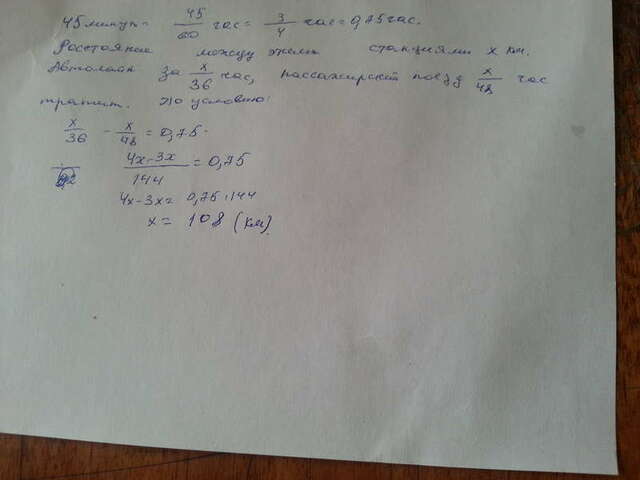 45 минут = 45/60 час = 3/4 час = 0,75 час.
Расстояние между этими станциями x км.
за x/36 час, пассажирский поезд x/48 час
тратит. По условию:
x/36 - x/48 = 0,75.
(4x-3x)/144 = 0,75
4x-3x = 0,75.144
x = 108 (км)